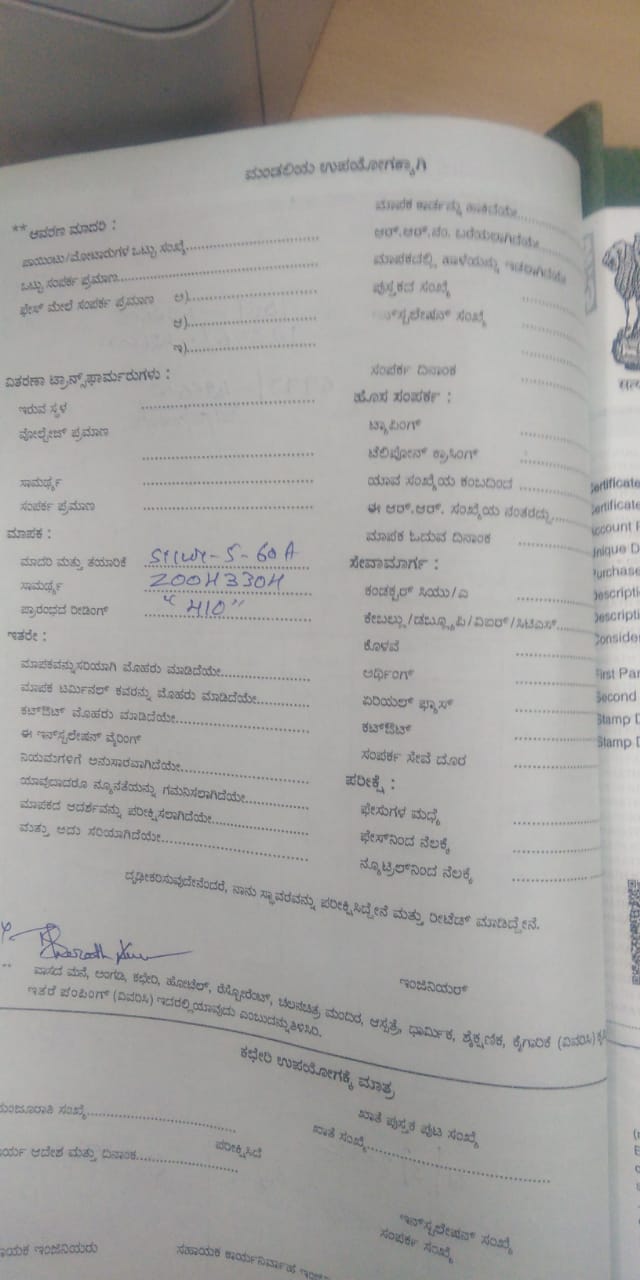 ಮಂಡಲಿಯ ಉಪಯೋಗಕ್ಕಾಗಿ
** ಆವರಣ ಮಾದರಿ :
ಪಾಯಿಂಟು/ಮೋಟಾರುಗಳ ಒಟ್ಟು ಸಂಖ್ಯೆ
ಒಟ್ಟು ಸಂಪರ್ಕ ಪ್ರಮಾಣ
ಫೇಸ್ ಮೇಲೆ ಸಂಪರ್ಕ ಪ್ರಮಾಣ ಅ)
ಆ)
ಇ)
ವಿತರಣಾ ಟ್ರಾನ್ಸ್‌ಫಾರ್ಮರುಗಳು :
ಇರುವ ಸ್ಥಳ
ವೋಲ್ಟೇಜ್ ಪ್ರಮಾಣ
ಸಾಮರ್ಥ್ಯ
ಸಂಪರ್ಕ ಪ್ರಮಾಣ
ಮಾಪಕ :
ಮಾದರಿ ಮತ್ತು ತಯಾರಿಕೆ 5-60A
ಸಾಮರ್ಥ್ಯ
ಪ್ರಾರಂಭದ ರೀಡಿಂಗ್ "410"
ಇತರೇ :
ಮಾಪಕವನ್ನುಸರಿಯಾಗಿ ಮೊಹರು ಮಾಡಿದೆಯೇ
ಮಾಪಕ ಟರ್ಮಿನಲ್ ಕವರನ್ನು ಮೊಹರು ಮಾಡಿದೆಯೇ
ಕಟ್‌ಔಟ್ ಮೊಹರು ಮಾಡಿದೆಯೇ
ಈ ಇನ್‌ಸ್ಟಲೇಷನ್ ವೈರಿಂಗ್
ನಿಯಮಗಳಿಗೆ ಅನುಸಾರವಾಗಿದೆಯೇ
ಯಾವುದಾದರೂ ನ್ಯೂನತೆಯನ್ನು ಗಮನಿಸಲಾಗಿದೆಯೇ
ಮಾಪಕದ ಆದರ್ಶವನ್ನು ಪರೀಕ್ಷಿಸಲಾಗಿದೆಯೇ
ಮತ್ತು ಅದು ಸರಿಯಾಗಿದೆಯೇ
ಮಾಪಕ ಕಾರ್ಡನ್ನು ಹಾಕಿದೆಯೇ
ಆರ್.ಆರ್.ನಂ. ಬರೆಯಲಾಗಿದೆಯೇ
ಮಾಪಕದಲ್ಲಿ ಹಾಳೆಯನ್ನು ಇಡಲಾಗಿದೆಯೇ
ಪುಸ್ತಕದ ಸಂಖ್ಯೆ
ಇನ್‌ಸ್ಟಲೇಷನ್ ಸಂಖ್ಯೆ
ಸಂಪರ್ಕ ದಿನಾಂಕ
ಹೊಸ ಸಂಪರ್ಕ :
ಟ್ಯಾಪಿಂಗ್
ಟೆಲಿಪೋನ್ ಕ್ರಾಸಿಂಗ್
ಯಾವ ಸಂಖ್ಯೆಯ ಕಂಬದಿಂದ
ಈ ಆರ್.ಆರ್. ಸಂಖ್ಯೆಯ ನಂತರದ್ದು
ಮಾಪಕ ಓದುವ ದಿನಾಂಕ
ಸೇವಾಮಾರ್ಗ :
ಕಂಡಕ್ಟರ್ ಸಿಯು/ಎ
ಕೇಬಲ್ಲು/ಡಬ್ಲ್ಯೂಪಿ/ವಿಐಆರ್/ಸಿಟಿಎಸ್
ಕೊಳವೆ
ಅರ್ಥಿಂಗ್
ಏರಿಯಲ್ ಫ್ಯೂಸ್
ಕಟ್‌ಔಟ್
ಸಂಪರ್ಕ ಸೇವೆ ದೂರ
ಪರೀಕ್ಷೆ :
ಫೇಸುಗಳ ಮಧ್ಯೆ
ಫೇಸ್‌ನಿಂದ ನೆಲಕ್ಕೆ
ನ್ಯೂಟ್ರಲ್‌ನಿಂದ ನೆಲಕ್ಕೆ
ದೃಢೀಕರಿಸುವುದೇನೆಂದರೆ, ನಾನು ಸ್ಥಾವರವನ್ನು ಪರೀಕ್ಷಿಸಿದ್ದೇನೆ ಮತ್ತು ರೀಟೆಡ್ ಮಾಡಿದ್ದೇನೆ.
ಇಂಜಿನಿಯರ್
** ವಾಸದ ಮನೆ, ಅಂಗಡಿ, ಕಛೇರಿ, ಹೋಟೆಲ್, ರೆಸ್ಟೋರೆಂಟ್, ಚಲನಚಿತ್ರ ಮಂದಿರ, ಆಸ್ಪತ್ರೆ, ಧಾರ್ಮಿಕ, ಶೈಕ್ಷಣಿಕ, ಕೈಗಾರಿಕೆ (ವಿವರಿಸಿ)
ಇತರೆ ಪಂಪಿಂಗ್ (ವಿವರಿಸಿ) ಇದರಲ್ಲಿಯಾವುದು ಎಂಬುದನ್ನುತಿಳಿಸಿರಿ.
ಕಛೇರಿ ಉಪಯೋಗಕ್ಕೆ ಮಾತ್ರ
ಮಂಜೂರಾತಿ ಸಂಖ್ಯೆ
ಖಾತೆ ಪುಸ್ತಕ ಪುಟ ಸಂಖ್ಯೆ
ಖಾತೆ ಸಂಖ್ಯೆ
ಕಾರ್ಯ ಆದೇಶ ಮತ್ತು ದಿನಾಂಕ
ಪರೀಕ್ಷಿಸಿದೆ
ಇನ್‌ಸ್ಟಲೇಷನ್ ಸಂಖ್ಯೆ
ಸಂಪರ್ಕ ಸಂಖ್ಯೆ
ಸಹಾಯಕ ಇಂಜಿನಿಯರು
ಸಹಾಯಕ ಕಾರ್ಯನಿರ್ವಾಹ
Certificate
Certificate
Account
Unique D
Purchase
Descripti
Descripti
Consider
First Par
Second
Stamp D
Stamp D